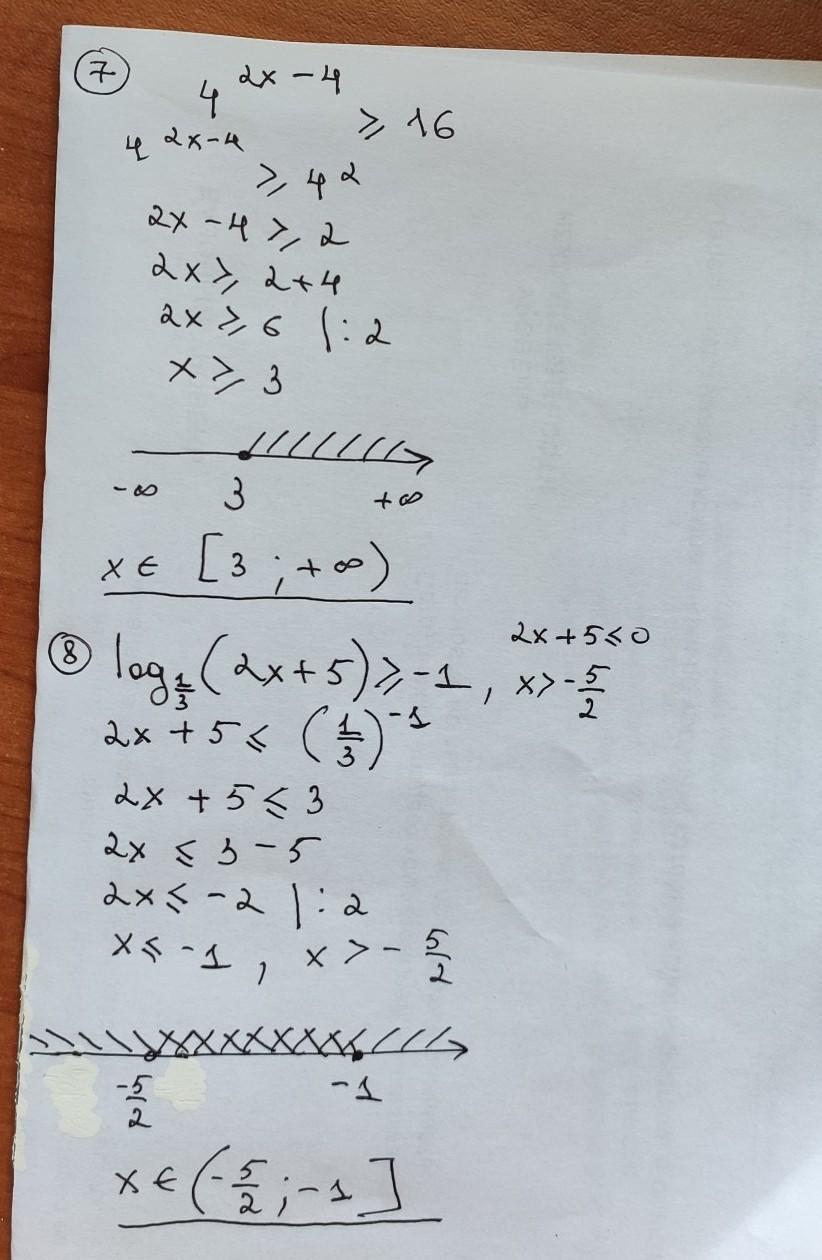 ⑦ 4^(2x-4) ⩾ 16
4^(2x-4) ⩾ 4^2
2x - 4 ⩾ 2
2x ⩾ 2+4
2x ⩾ 6 |:2
x ⩾ 3
-∞ 3 +∞
x ∈ [3 ; +∞)
⑧ log_(1/3) (2x+5) ⩾ -1, 2x+5 ⩽ 0
x > -5/2
2x + 5 ⩽ (1/3)^(-1)
2x + 5 ⩽ 3
2x ⩽ 3 - 5
2x ⩽ -2 |:2
x ⩽ -1, x > -5/2
-5/2 -1
x ∈ (-5/2 ; -1]